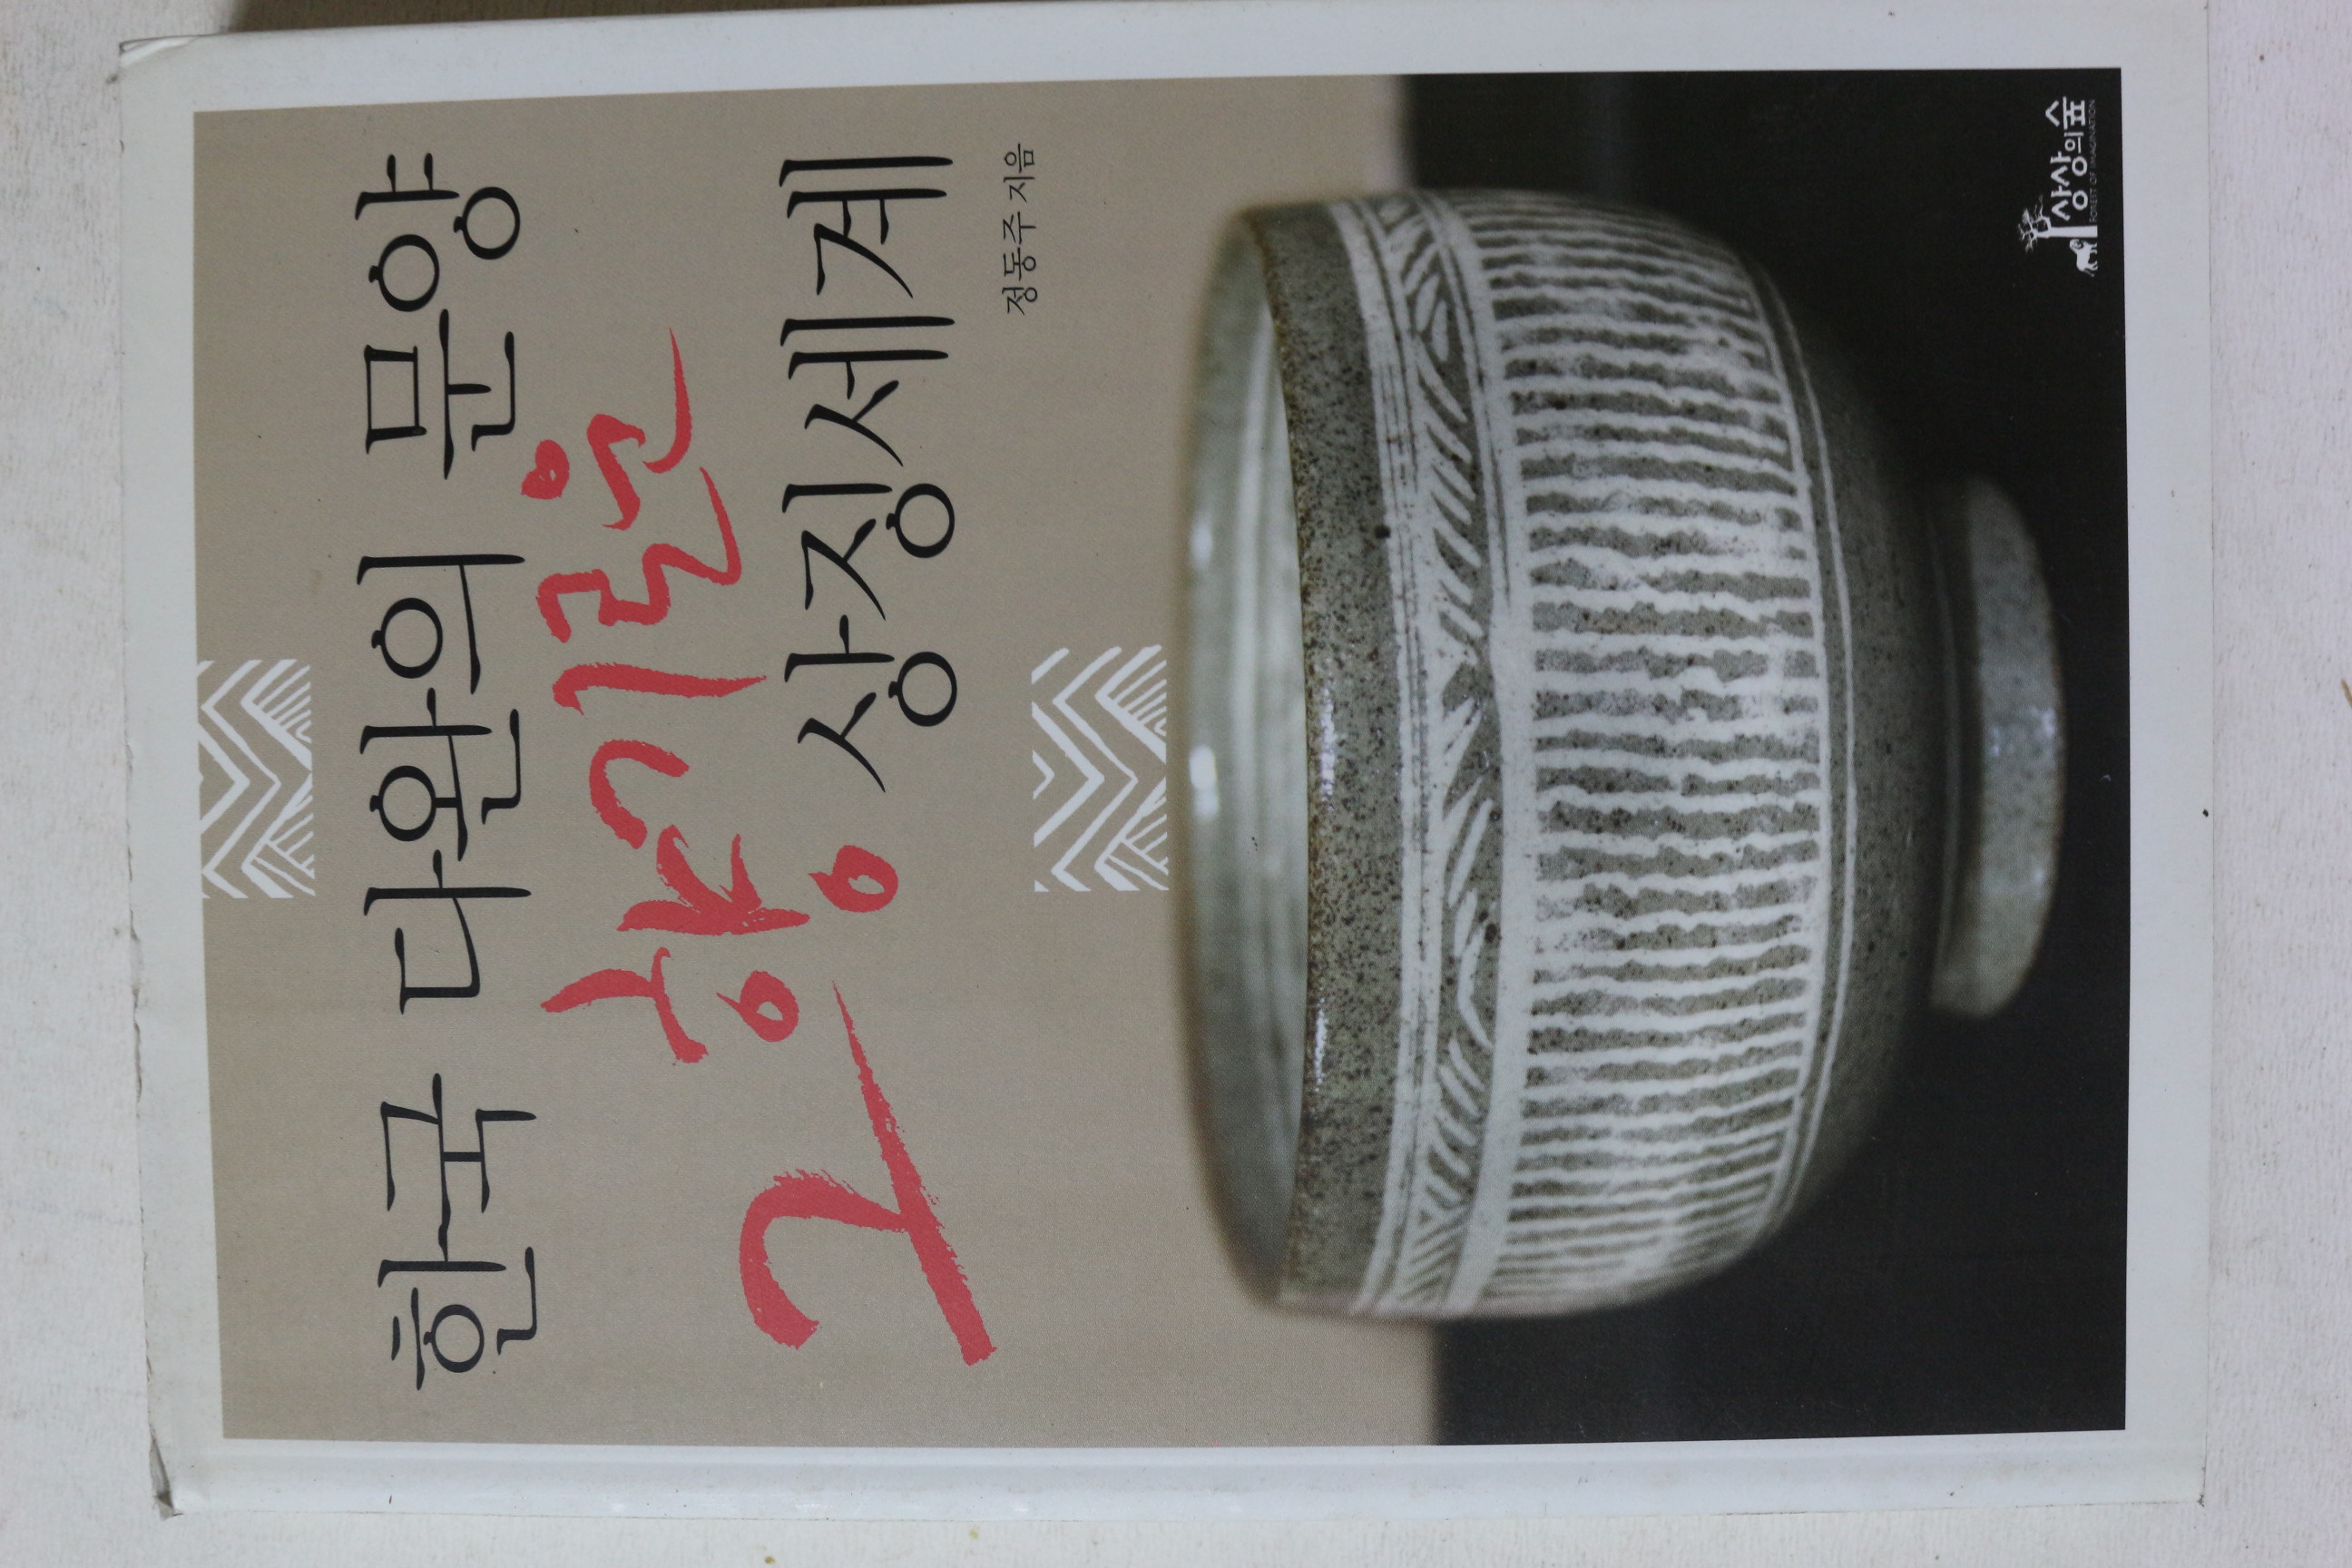 한국 다완의 문양
그 향기로운
상징세계
정동주 지음
상상의숲
FOREST OF IMAGINATION